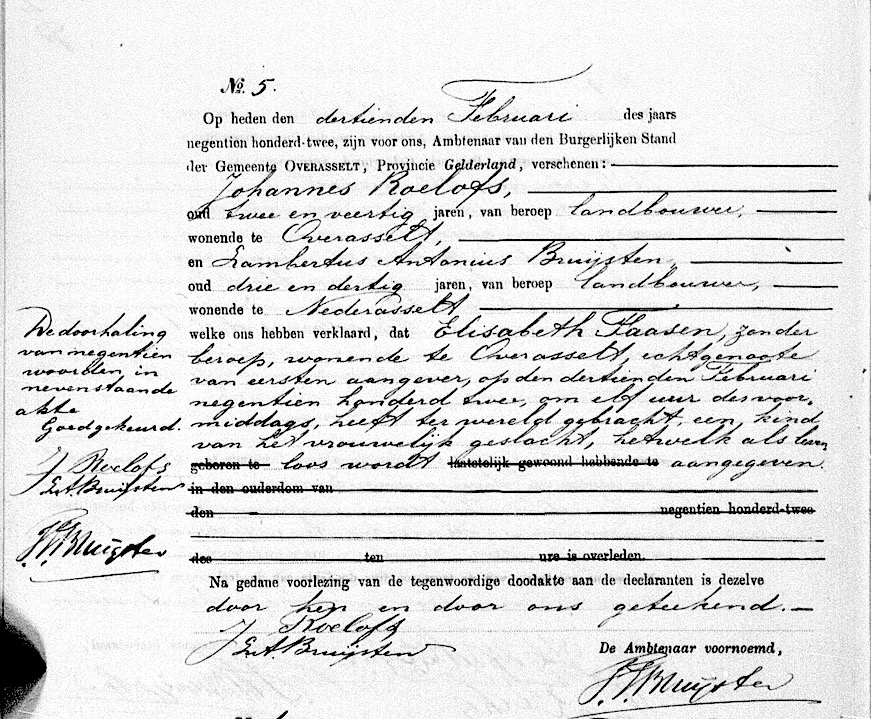 No. 5.
Op heden den dertienden Februari des jaars
negentien honderd-twee, zijn voor ons, Ambtenaar van den Burgerlijken Stand
der Gemeente OVERASSELT, Provincie Gelderland, verschenen:
Johannes Roelofs,
oud twee en veertig jaren, van beroep landbouwer,
wonende te Overasselt,
en Lambertus Antonius Bruijsten,
oud drie en dertig jaren, van beroep landbouwer,
wonende te Nederasselt,
welke ons hebben verklaard, dat Elisabeth Haasen, zonder
beroep, wonende te Overasselt, echtgenoote
van eersten aangever, op den dertienden Februari
negentien honderd twee, om elf uur des voor-
middags, heeft ter wereld gebracht, een kind
van het vrouwelijk geslacht, hetwelk als leven
geboren te loos wordt laatstelijk gewoond hebbende te aangegeven
in den ouderdom van
den negentien honderd-twee
des ten ure is overleden.
Na gedane voorlezing van de tegenwoordige doodakte aan de declaranten is dezelve
door hen en door ons geteekend.
J Roelofs
L. A. Bruijsten
De Ambtenaar voornoemd,
De doorhaling
van negentien
woorden in
nevenstaande
akte
Goedgekeurd.
J Roelofs
L. A. Bruijsten